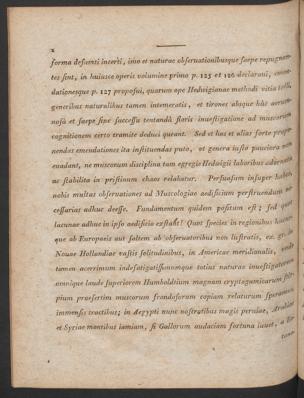 2
forma desciuti incerti, imo et naturae obseruationibusque saepe repugnan-
tes sint, in huiusce operis volumine primo p. 125 et 126 declaraui, emen-
dationesque p. 127 proposui, quarum ope Hedwigianae methodi vitia tolli,
generibus naturalibus tamen intemeratis, et tirones absque hac aerum-
nosa et saepe sine successu tentanda floris inuestigatione ad muscorum
cognitionem certo tramite deduci queant. Sed et has et alias forte propo-
nendas emendationes ita instituendas puto, vt genera iusto pauciora non
euadant, ne muscorum disciplina tam egregie Hedwigii laboribus adornata
ac stabilita in pristinum chaos relabatur. Persuasum insuper habeo,
nobis multas obseruationes ad Muscologiae aedificium perstruendum ne-
cessarias adhuc deesse. Fundamentum quidem positum est; sed quot
lacunae adhuc in ipso aedificio exstant! Quot species in regionibus hucus-
que ab Europaeis aut saltem ab obseruatoribus non lustratis, ex. gr. in
Nouae Hollandiae vastis solitudinibus, in Americae meridionalis, vnde
tamen acerrimum indefatigatissimumque totius naturae inuestigatorem
omnique laude superiorem Humboldtium magnam cryptogamicarum stir-
pium praesertim muscorum frondosorum copiam relaturum speramus
immensis tractibus; in Aegypti nunc nostratibus magis peruiae, Arabiae
et Syriae montibus iamiam, si Gallorum audaciam fortuna iuuet,